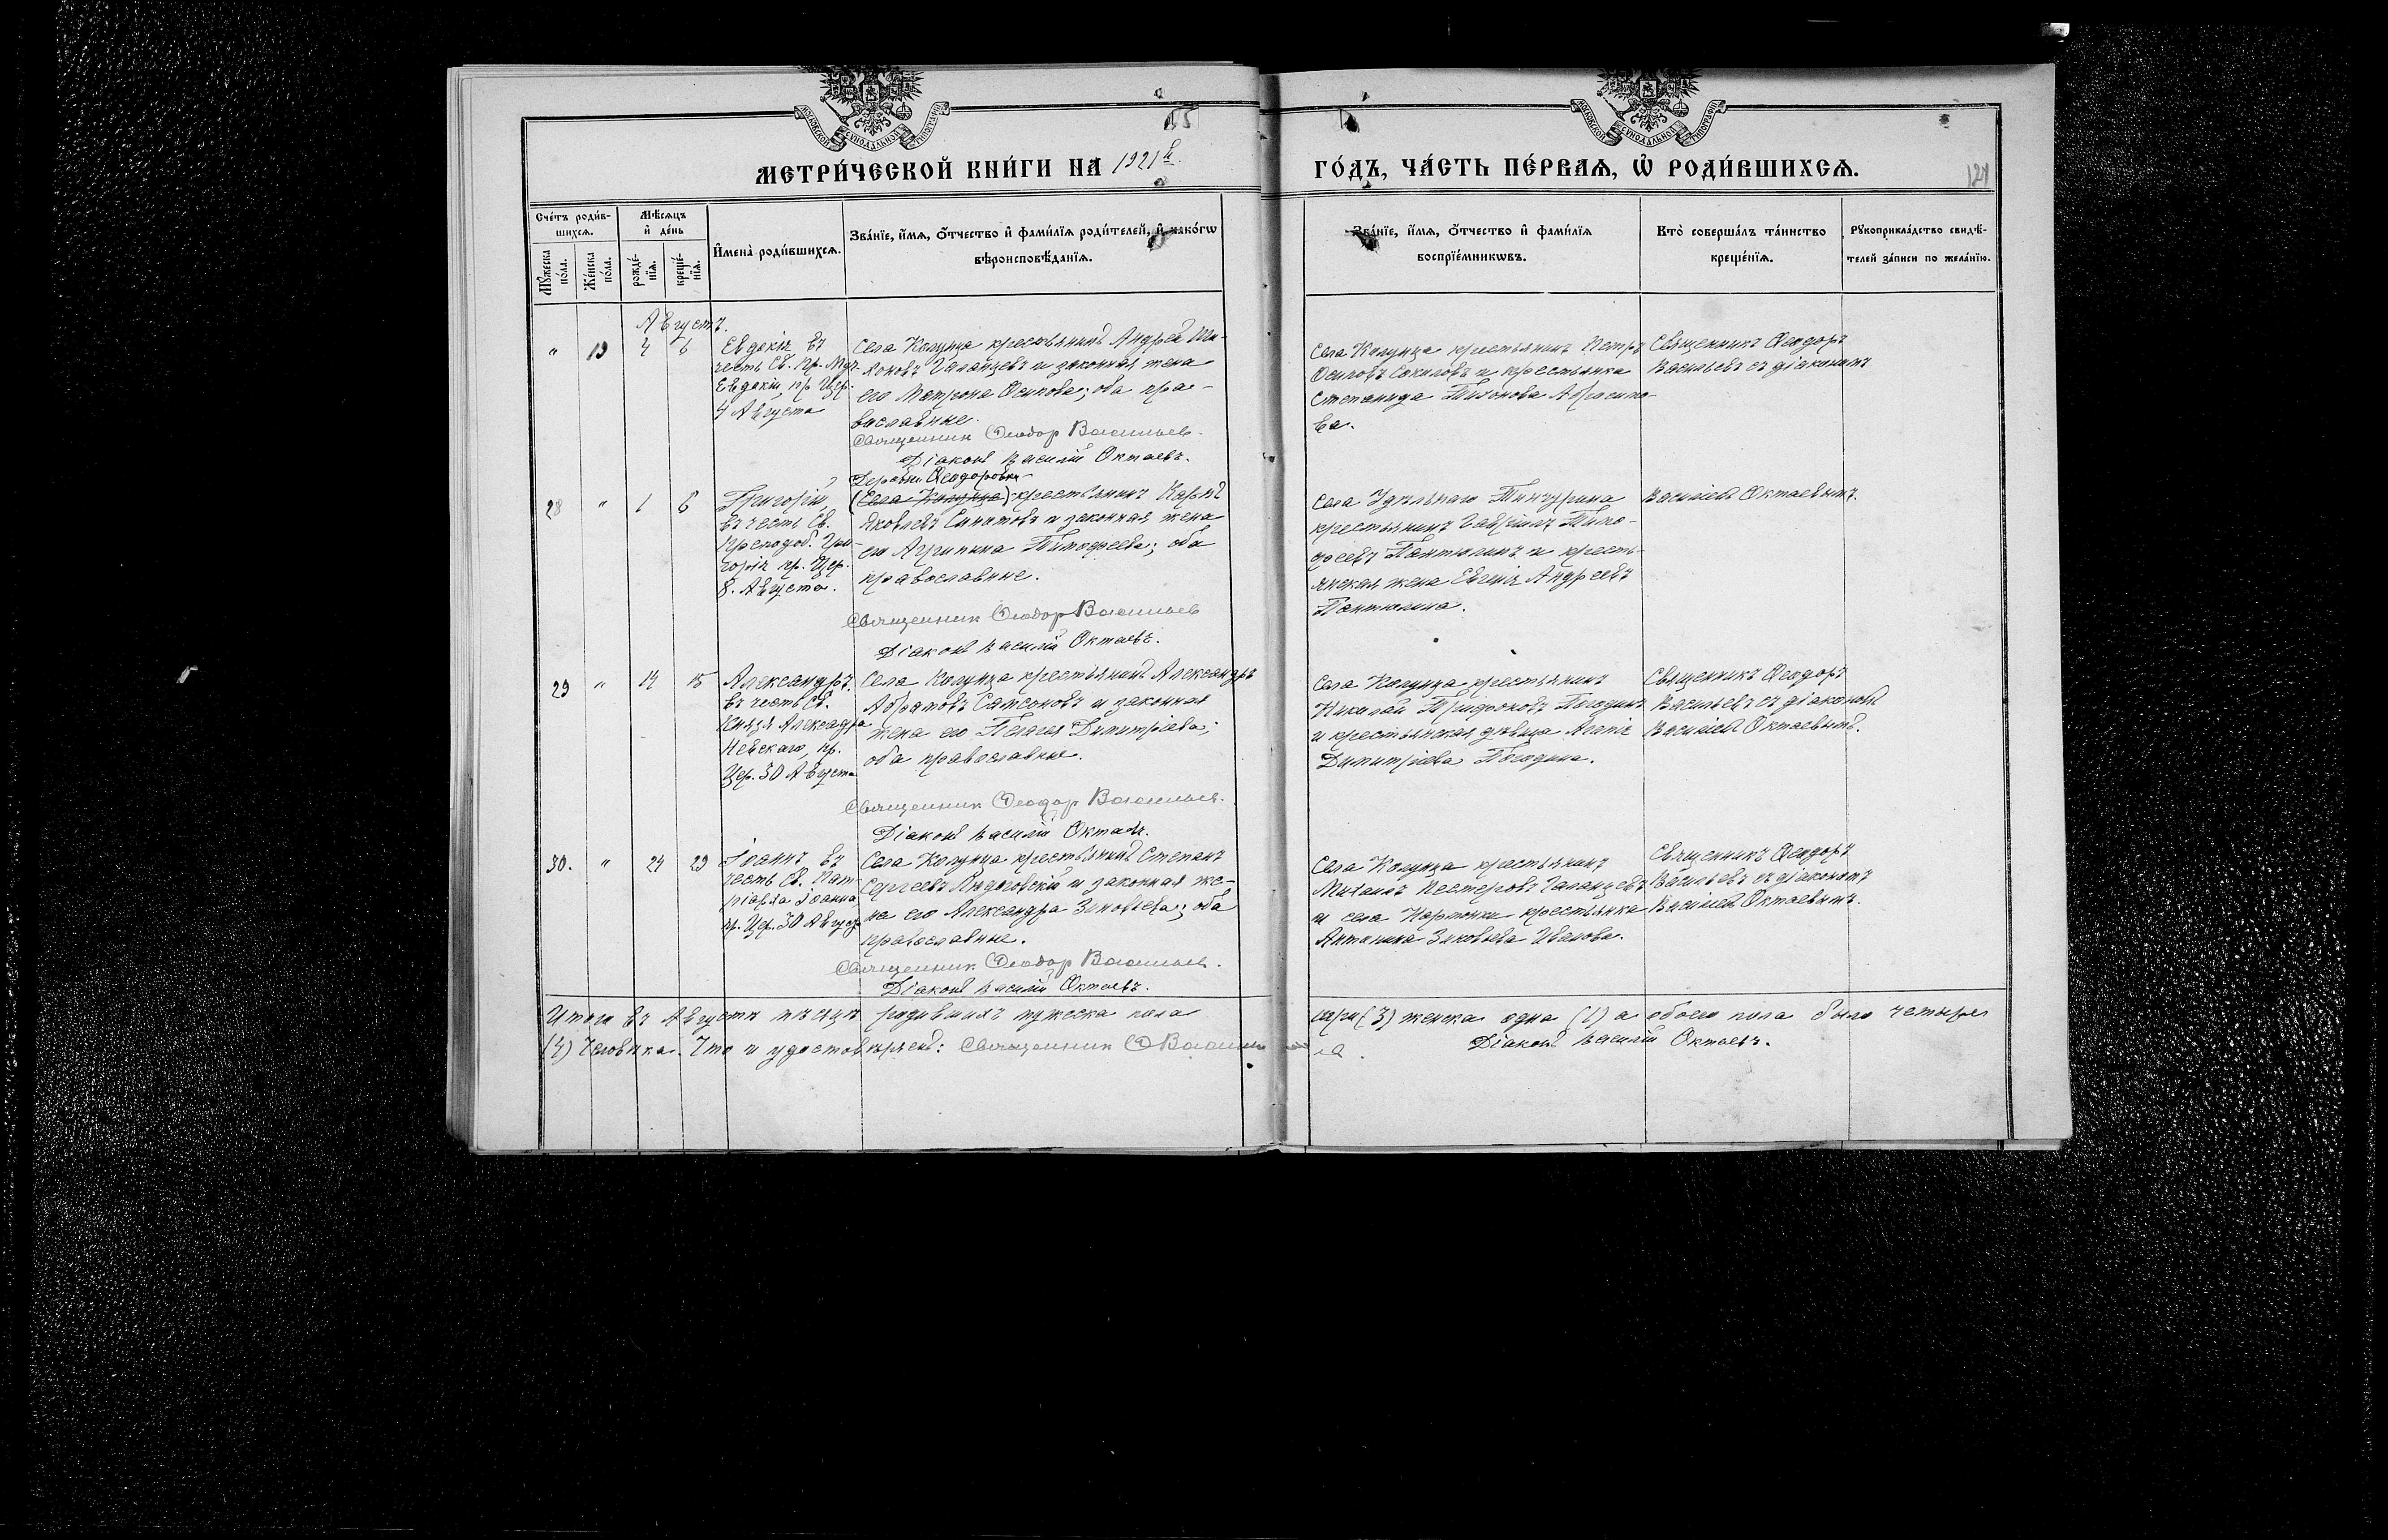 55
МЕТРИ́ЧЕСКОЙ КНИ́ГИ НА 1921й.
ГО́ДЪ, ЧА́СТЬ ПЕ́РВАѦ, Ѡ РОДИ́ВШИХСѦ.
124
Сче́тъ роди́в-
шихсѧ.
Мꙋ́жеска по́ла.
Же́нска по́ла.
Мѣ́сѧцъ
и де́нь
рожде́-нїѧ.
креще́-нїѧ.
И́мена̀ роди́вшихсѧ.
Зва́нїе, и́мѧ, о́тчество и фами́лїѧ роди́телей, и како́гѡ
вѣроисповѣ́данїѧ.
Зва́нїе, и́мѧ, о́тчество и фами́лїѧ
воспрїе́мникѡвъ.
Кто̀ соверша́лъ та́инство
креще́нїѧ.
Рꙋкоприкла́дство свидѣ́-
телей за́писи по жела́нїю.
Августъ.
" 19 4 6
Евдокія въ
честь Св. Пр. Муч.
Евдокіи, пр. Цер.
4 Августа
Села Колунца крестьянинъ Андрей
Галанцевъ и законная жена
его Матрона Осипова; оба пра-
вославные.
Священник Феодор Васильев.
Діаконъ Василій Октаевъ.
Села Колунца крестьянинъ Петръ
Осиповъ Соколовъ и крестьянка
Степанида Тихонова
ва.
Священникъ Феодоръ
Васильевъ съ діакономъ
Василіемъ Октаевымъ.
28 " 1 6
Григорій,
въ честь Св.
Преподоб. Гри-
горія пр. Цер.
8. Августа.
Деревни Феодоровки
(Села Колунца) крестьянинъ Карпъ
Яковлевъ и законная жена
его Агрипина Тимофеева; оба
православные.
Священник Феодор Васильев
Діаконъ Василій Октаевъ.
Села Удѣльнаго Тинчурина
крестьянинъ Гавріилъ Тимо-
феевъ Пантюлинъ и кресть-
янская жена Евгенія Андреевъ
Пантюлина.
29 " 14 15
Александръ,
въ честь Св.
Князя Александра
Невскаго, пр.
Цер. 30 Августа
Села Колунца крестьянинъ Александръ
Абрамовъ Самсоновъ и законная
жена его Пелагея Димитріева;
оба православные.
Священник Феодор Васильев.
Діаконъ Василій Октаевъ.
Села Колунца крестьянинъ
Николай Трифоновъ Погодинъ
и крестьянская дѣвица Агнія
Димитріева Погодина.
Священникъ Феодоръ
Васильевъ съ діакономъ
Василіемъ Октаевымъ.
30. " 24 29
Іоаннъ, въ
честь Св. Пат-
ріарха Іоанна,
пр. Цер. 30 Август.
Села Колунца крестьянинъ Степанъ
Сергеевъ и законная же-
на его Александра Зиновьева; оба
православные.
Священник Феодор Васильев.
Діаконъ Василій Октаевъ.
Села Колунца крестьянинъ
Михаилъ Нестеровъ Галанцевъ
и села крестьянка
Антонина Зиновьева Иванова.
Священникъ Феодоръ
Васильевъ съ діакономъ
Василіемъ Октаевымъ.
Итого въ Августѣ мѣсяцѣ родившихъ мужеска пола три (3) женска одна (1) а обоего пола было четыре
(4) человѣка. Что и удостовѣряемъ: Священник Ф Васильев. Діаконъ Василій Октаевъ.